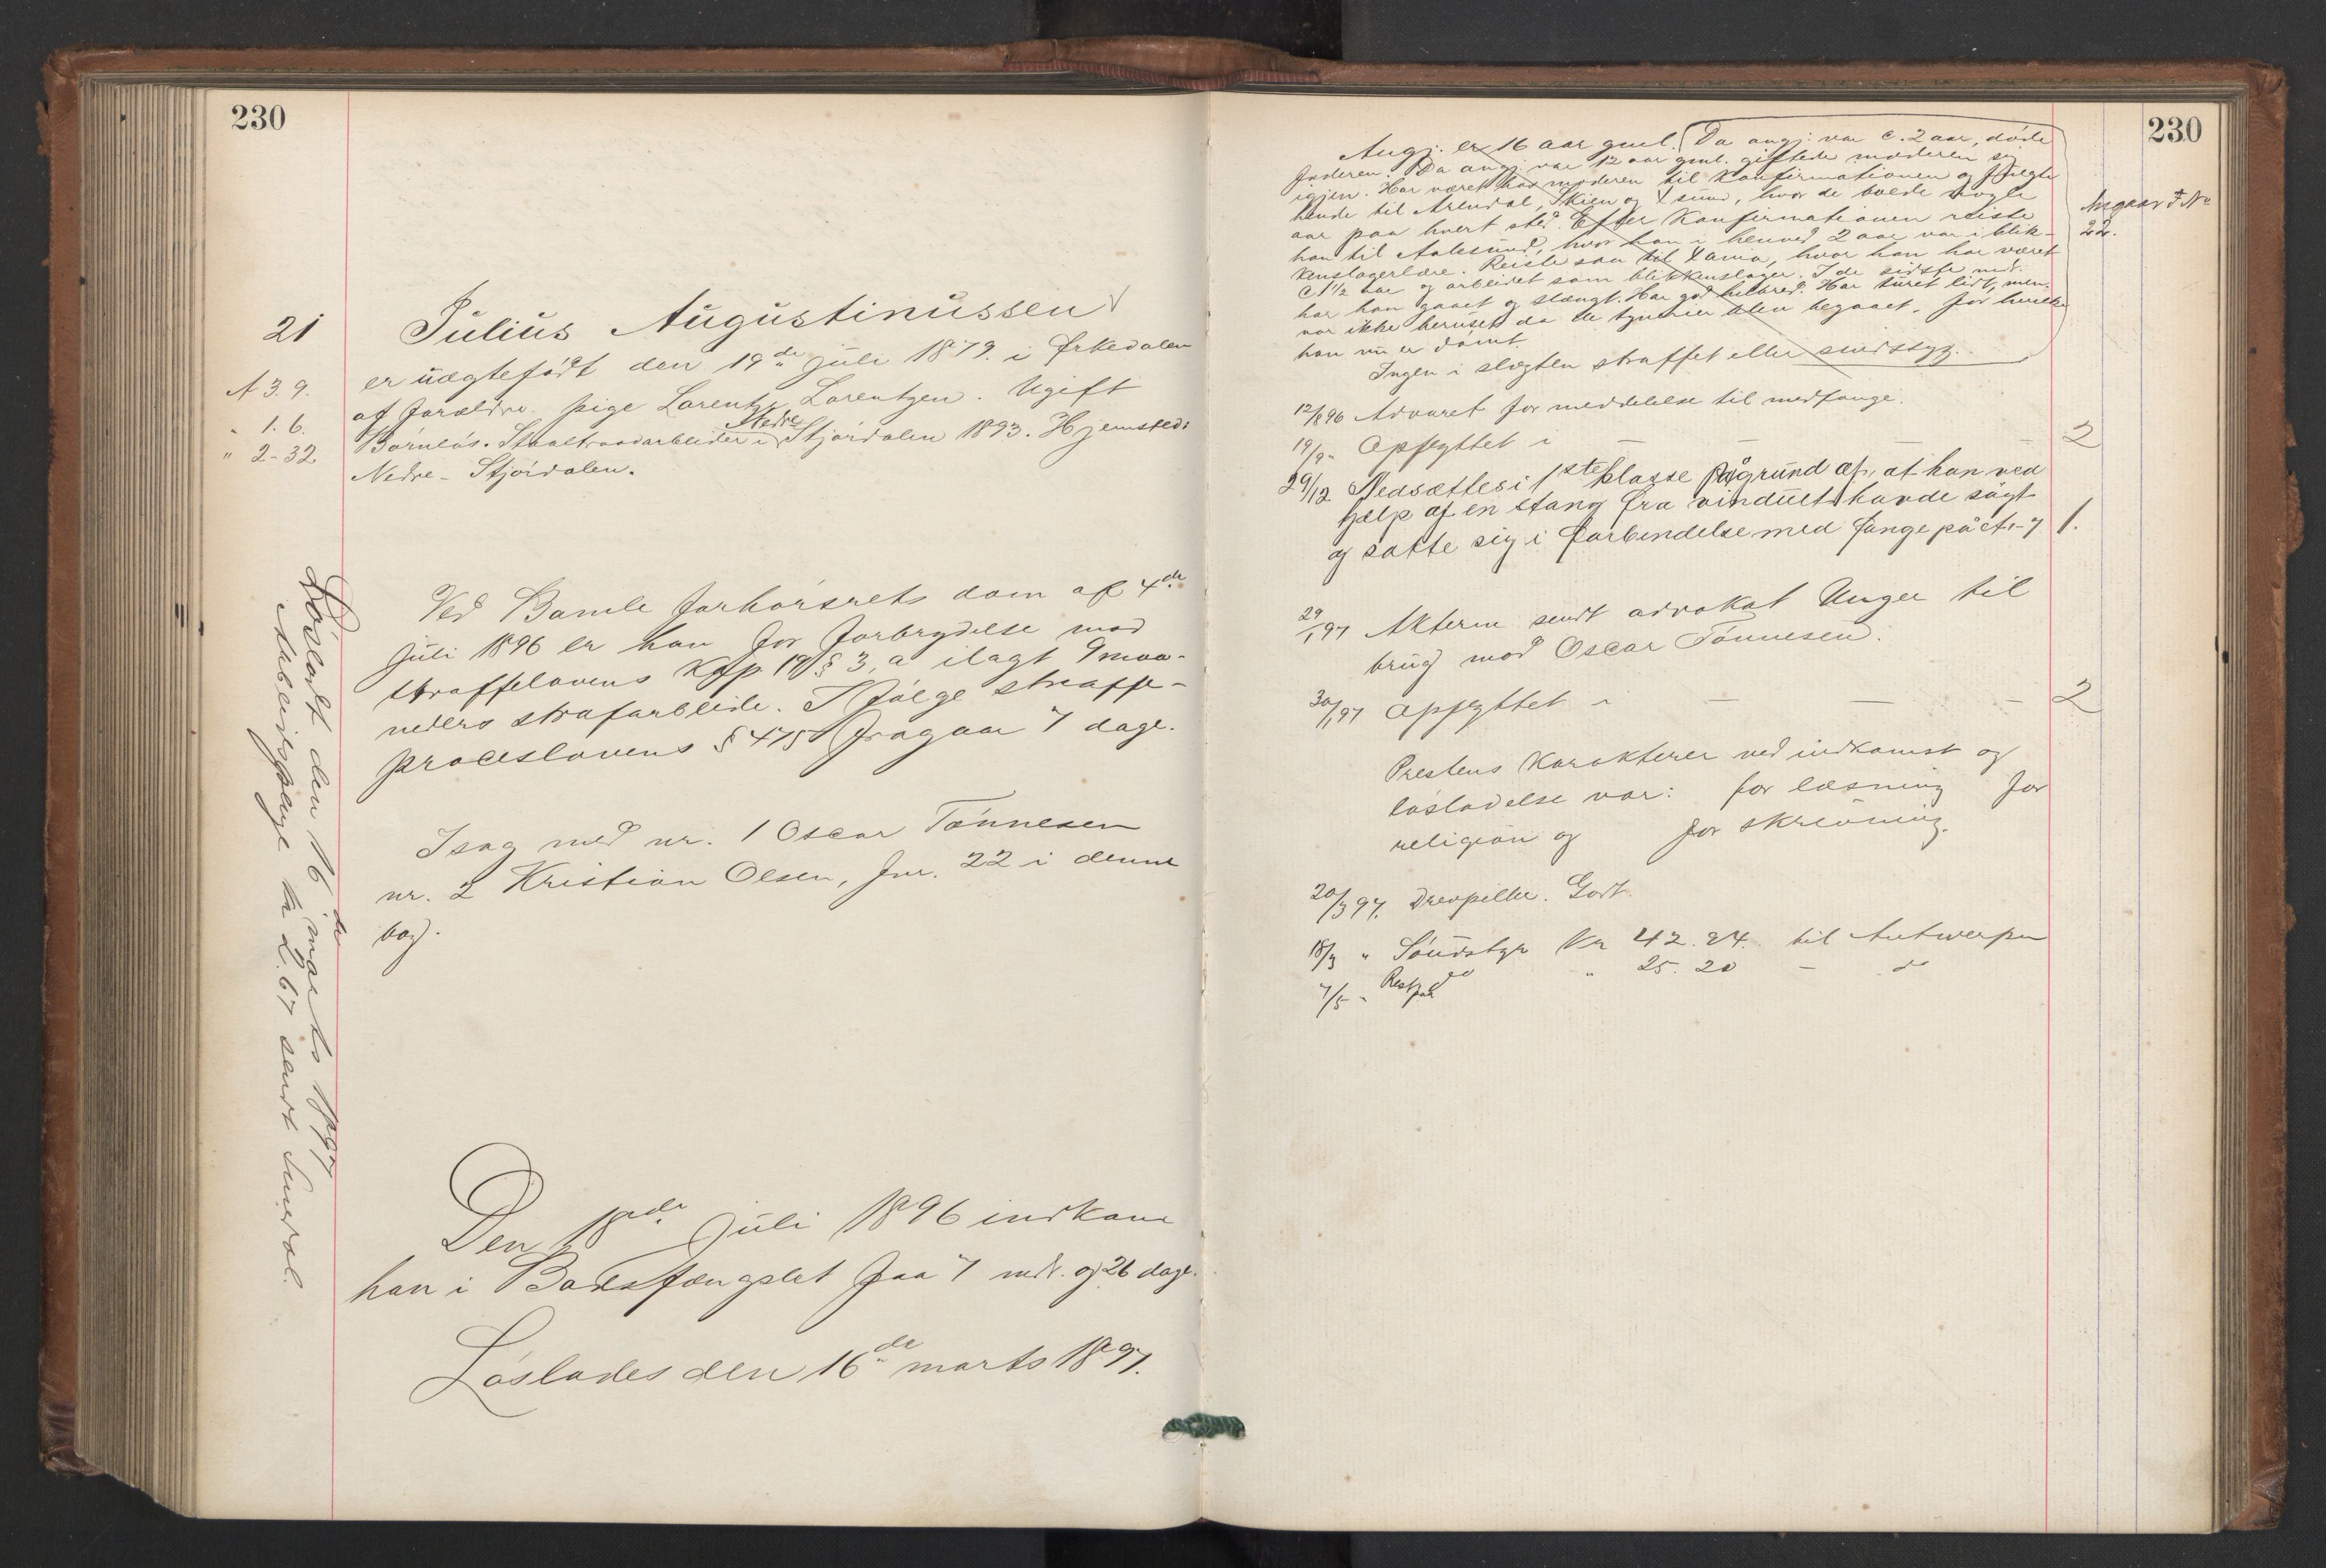 230
21
Julius Augustinussen
er uægtefødt den 19de juli 1879. i Ørkedalen
A 3. 9.
af forældre. pige Lorentze Lorentzen. Ugift
" 1. 6.
Barnløs. Staaltraadarbeider i Nedre Stjørdalen 1893. Hjemsted:
" 2-32
Nedre-Stjørdalen.
Ved Bamle forhørsrets dom af 4de
juli 1896 er han for forbrydelse mod
straffelovens Kap 19 § 3, a ilagt 9 maa-
neders strafarbeide. I følge straffe-
proceslovens § 475 fragaar 7 dage.
I sag med nr. 1 Oscar Tønnesen
nr. 2 Kristian Olsen, fnr. 22 i denne
bog.
Den 18de juli 1896 indkom
han i Bodsfængslet paa 7 mdr. og 26 dage.
Løslades den 16de marts 1897.
Løsladt den 16de marts 1897
Arbeidspenge kr 2.67 sendt
230
Angj. er 16 aar gml. Da angj. var c. 2 aar, døde
faderen. Da angj. var 12 aar gml. giftede moderen sig
igjen. Har været hos moderen til Konfirmationen og fulgte
hende til Arendal, Skien og Xsund, hvor de boede nogle
aar paa hvert sted. Efter Konfirmationen reiste
han til Aalesund, hvor han i henved 2 aar var i blik-
kenslagerlære. Reiste saa til Xania, hvor han har været
c 1 1/2 aar og arbeidet som blikkenslager. I de sidste mdr.
har han gaaet og slængt. Har god helbred. Har turet lidt, men
var ikke beruset da de tyverier blev begaaet, for hvilke
han nu er dømt.
Ingen i slægten straffet eller sindssyg.
Angaar F No
22.
12/8 96 Advaret for meddelelse til medfange.
19/9 " Opflyttet i — — — — 2
29/12 Nedsættes i 1ste klasse på grund af, at han ved
hjælp af en stang fra vinduet havde søgt
og satte sig i forbindelse med fange på ct.-7 1.
29/1 97 Akterne sendt advokat Unger til
brug mod Oscar Tønnesen.
30/1 97 Opflyttet i — — — 2
Prestens Karakterer ved indkomst og
løsladelse var: for læsning for
religion og for skrivning.
20/3 97. Drevpiller. Godt.
18/3 " Kr 42.24. til Antwerpen
7/5 " Rest do " 25.20 — do